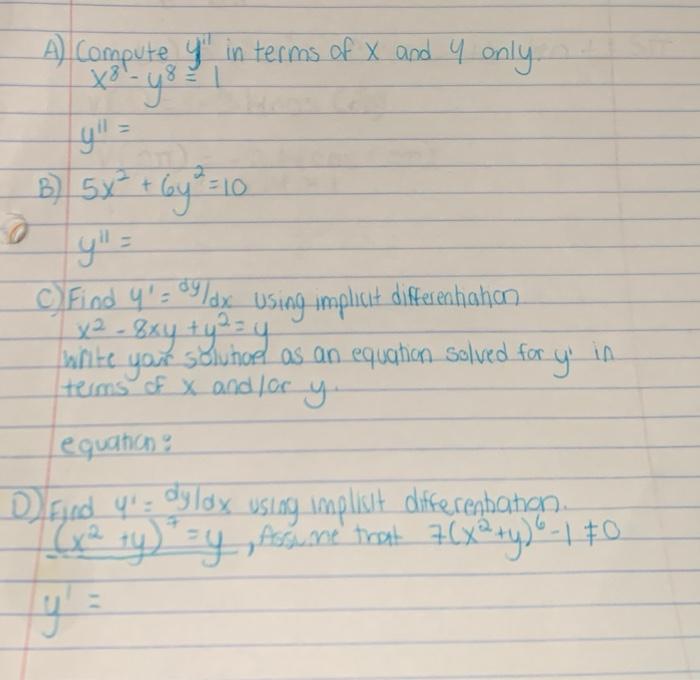 A) Compute y'' in terms of x and y only.
x⁸ - y⁸ = 1
y'' =
B) 5x² + 6y² = 10
y'' =
C) Find y' = dy/dx using implicit differentiation
x² - 8xy + y² = y
Write your as an equation solved for y' in
terms of x and/or y.
equation:
D) Find y' = dy/dx using implicit differentiation.
(x² + y)⁷ = y, Assume that 7(x² + y)⁶ - 1 ≠ 0
y' =